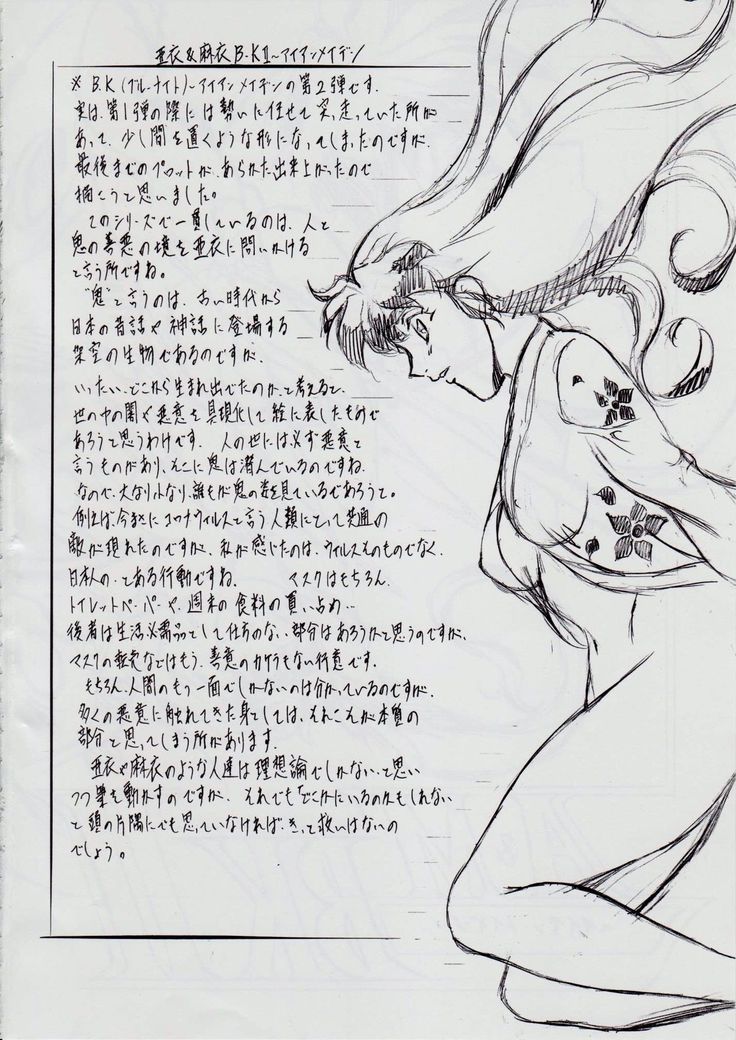 亜衣&麻衣 B.KⅡ~アイアンメイデン
※ B.K(ブルーナイト)~アイアンメイデンの第2弾です.
実は、第1弾の際には勢いに任せて突っ走っていた所が
あって、少し間を置くような形になってしまったのですが、
最後までのプロットが、あらかた出来上がったので
描こうと思いました。
このシリーズで一貫しているのは、人と
鬼の善悪の境を亜衣に問いかける
と言う所ですね。
"鬼"と言うのは、古い時代から
日本の昔話や神話に登場する
架空の生物であるのですが、
いったい、どこから生まれ出でたのか、と考えると、
世の中の闇や悪意を具現化して絵に表したもので
あろうと思うわけです. 人の世には必ず悪意と
言うものがあり、そこに鬼は潜んでいるのですね.
なので、大なり小なり、誰もが鬼の姿を見ているであろうと。
例えば今まさにコロナウィルスと言う人類にとって共通の
敵が現れたのですが、私が感じたのは、ウィルスそのものでなく、
日本人の、とある行動ですね. マスクはもちろん、
トイレットペーパーや、週末の食料の買い占め…
後者は生活必需品として仕方のない部分はあろうかと思うのですが、
マスクの転売などはもう、善意のカケラもない行意です.
もちろん、人間のもつ一面でしかないのは分かっているのですが、
多くの悪意に触れてきた身としては、それこそが本質の
部分と思ってしまう所があります.
亜衣や麻衣のような人達は理想論でしかない、と思い
つつ筆を動かすのですが、それでも「どこかにいるのかもしれない
と頭の片隅にでも思っていなければ、きっと救いはないの
でしょう。